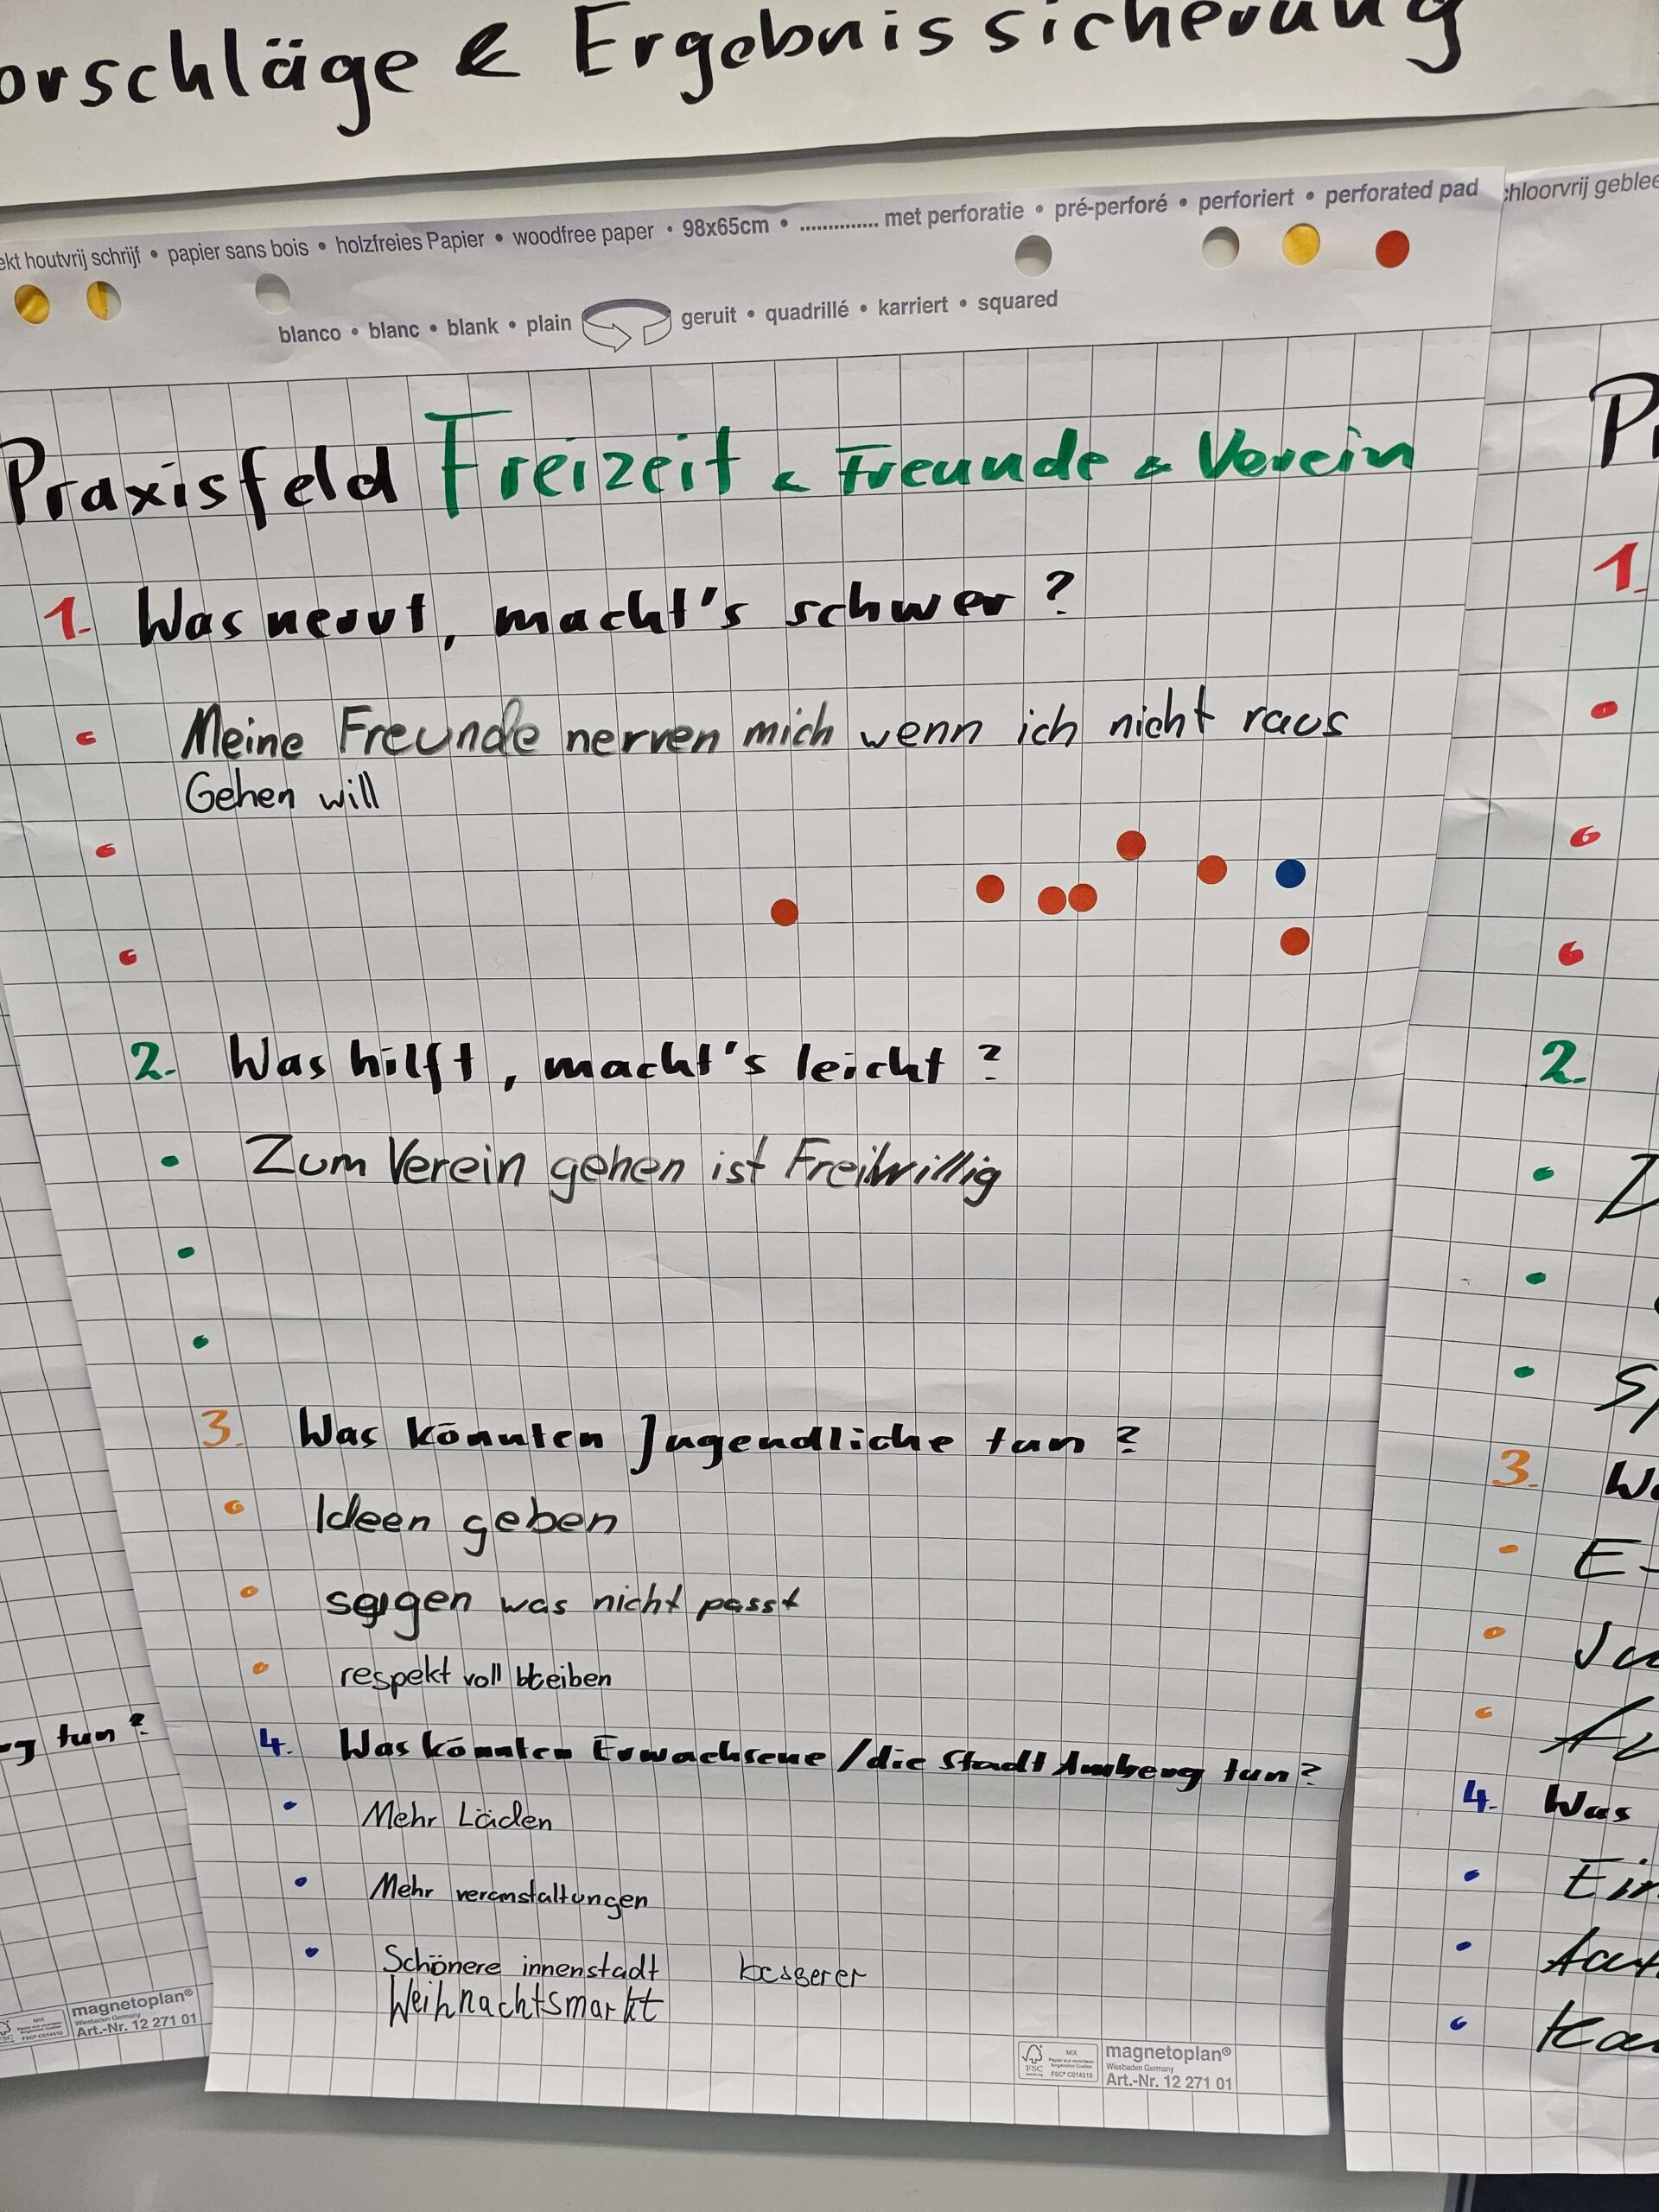 orschläge & Ergebnissicherung
ekt houtvrij schrijf • papier sans bois • holzfreies Papier • woodfree paper • 98x65cm • .............. met perforatie • pré-perforé • perforiert • perforated pad
chloorvrij geblee
blanco • blanc • blank • plain geruit • quadrillé • karriert • squared
Praxisfeld Freizeit & Freunde & Verein
1. Was nervt, macht's schwer?
Meine Freunde nerven mich wenn ich nicht raus
Gehen will
2. Was hilft, macht's leicht?
Zum Verein gehen ist Freiwillig
3. Was könnten Jugendliche tun?
Ideen geben
sagen was nicht passt
respekt voll bleiben
4. Was könnten Erwachsene / die Stadt Amberg tun?
Mehr Läden
Mehr veranstaltungen
Schönere innenstadt besserer
Weihnachtsmarkt
FSC
MIX
FSC® C014510
magnetoplan®
Wiesbaden Germany
Art.-Nr. 12 271 01
g tun?
magnetoplan®
Wiesbaden Germany
Art.-Nr. 12 271 01
1.
2.
3.
4. Was